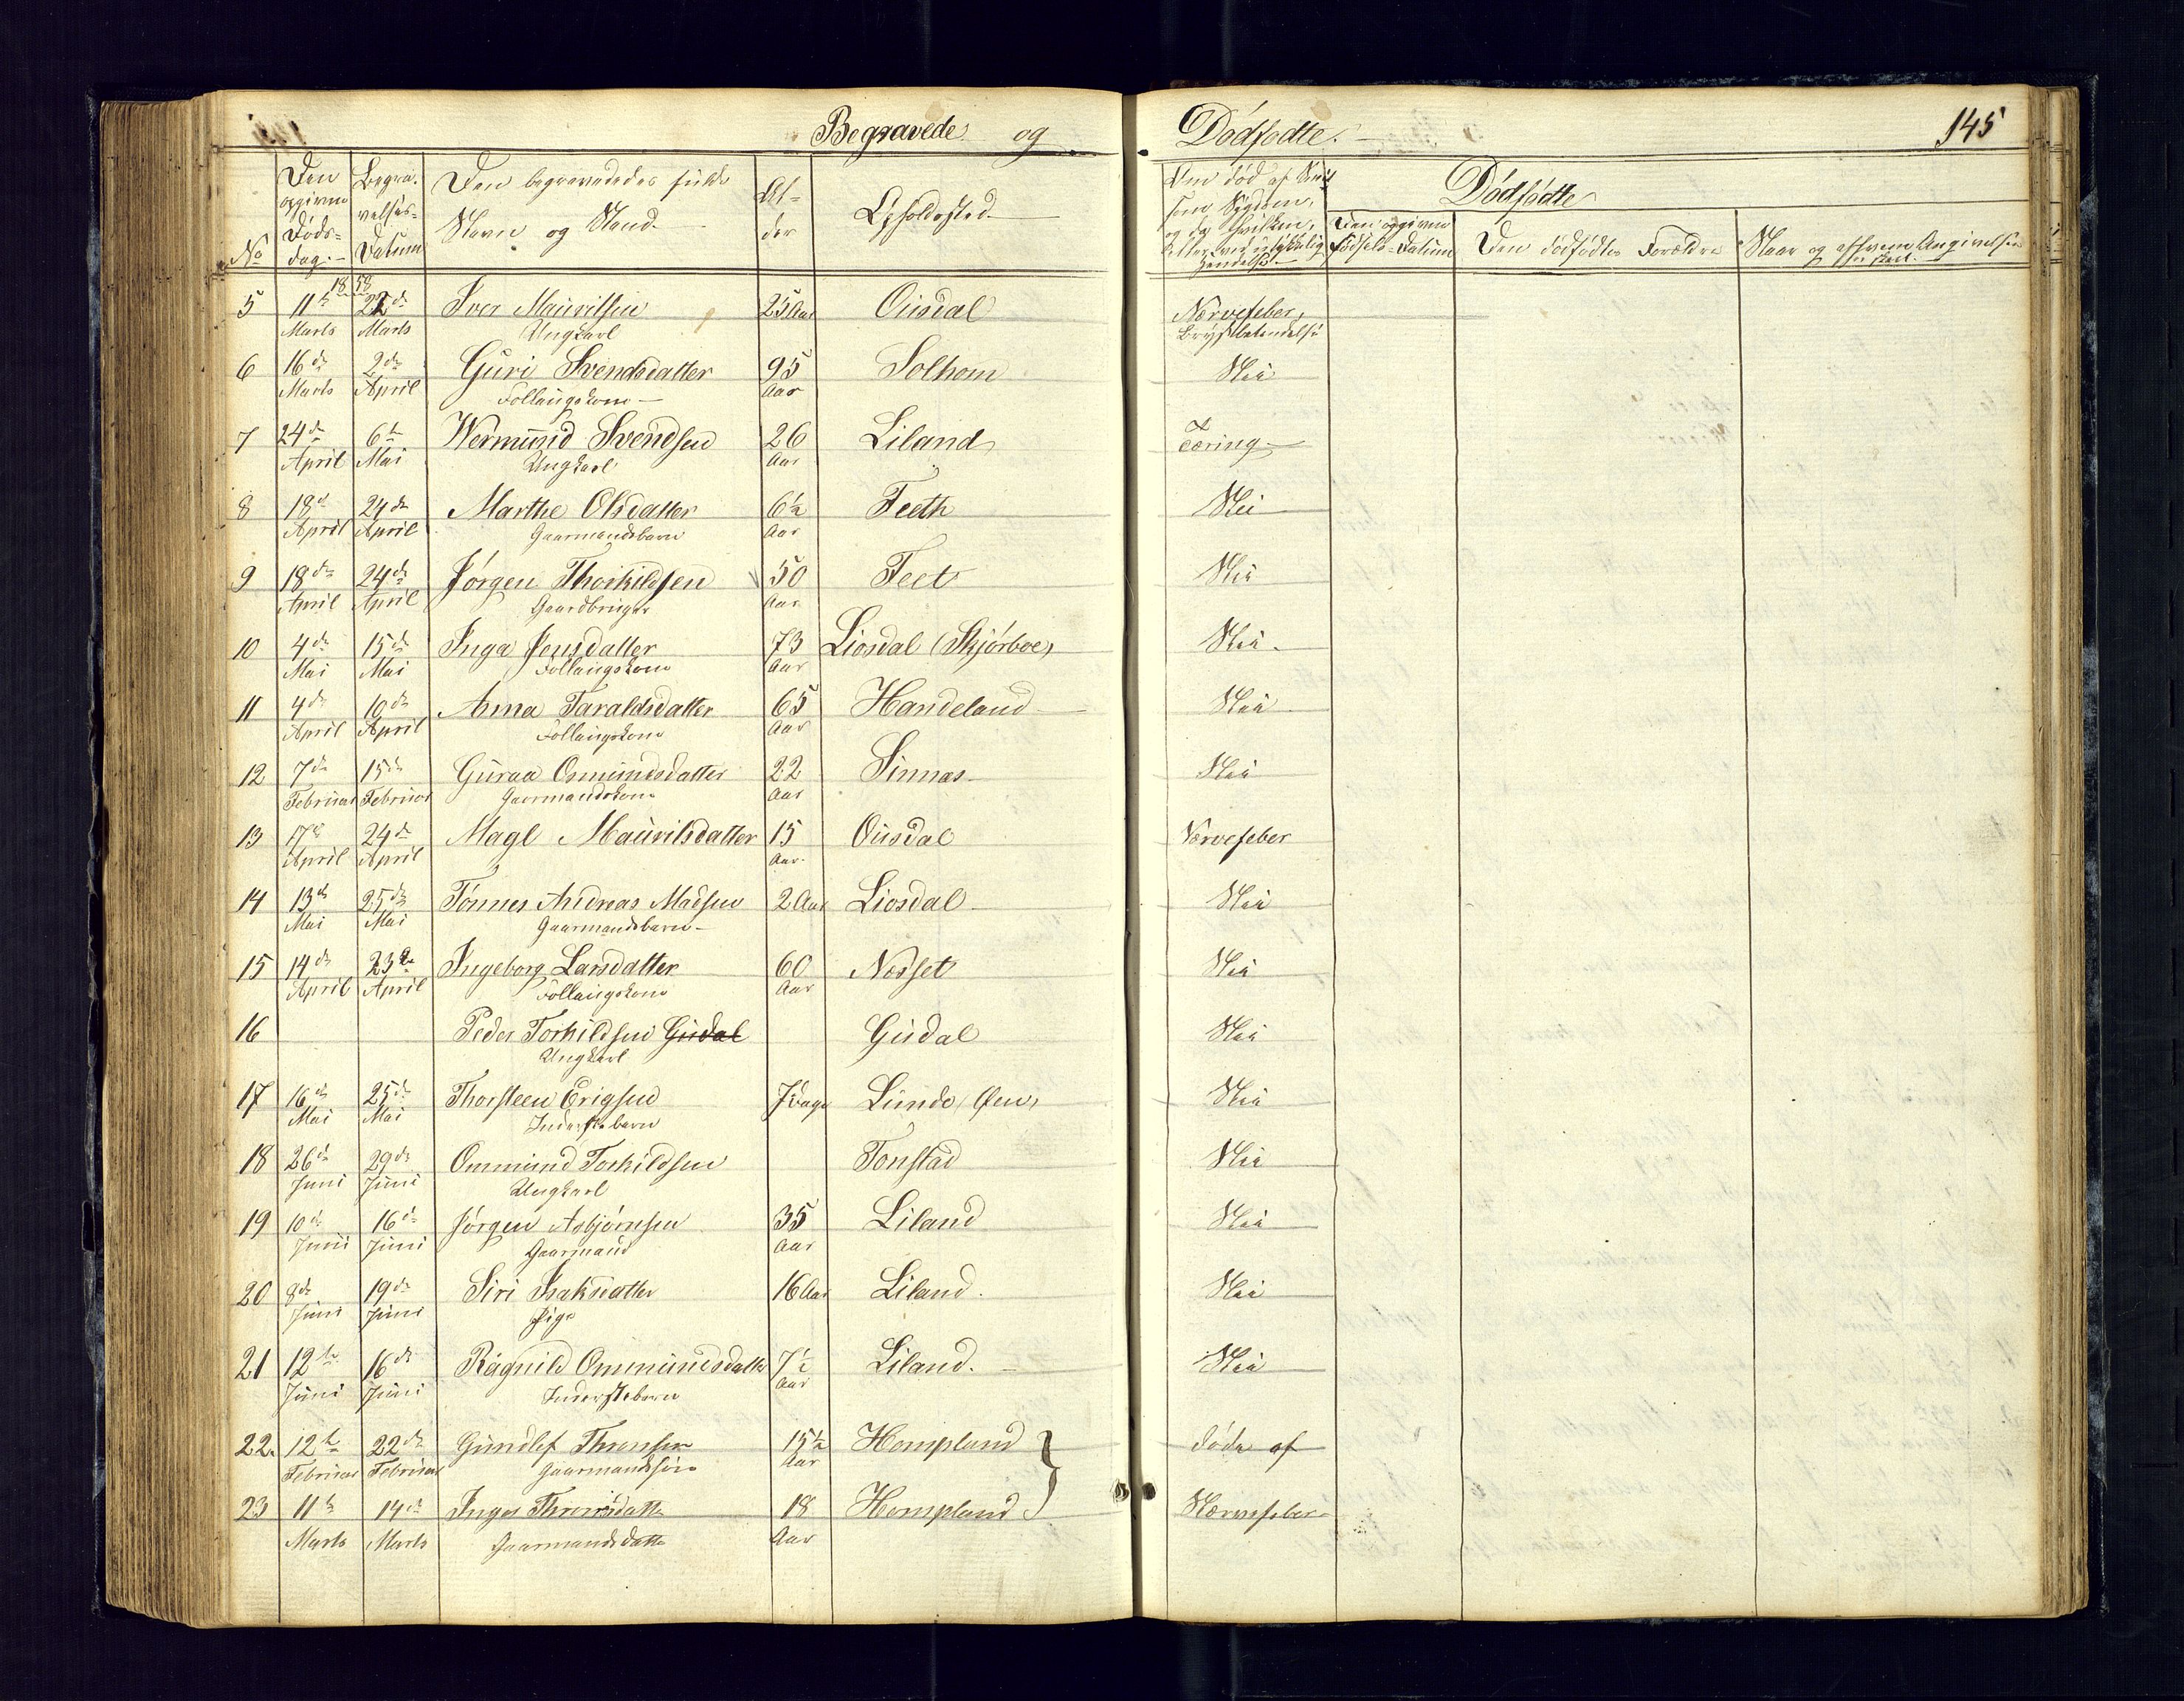 Begravede og Dødfødte.
145
No
Den opgivne Døds-dag.
Begravelses-Datum
Den begravedes fulde Navn og Stand.
Alder
Opholdssted
Om død af
som Sygdom,
Dødfødte
Den opgivne Fødsels-Datum
Den dødfødtes Forældre
Naar og af hvem Angivelsen er skeet.
1858
5 11te 22de Iver Mauritsen 25 Aar Ousdal Nervefeber,
Marts Marts Ungkarl Brystbetændelse
6 16de 2de Guri Svendsdatter 95 Solhom Nei
Marts April Føllaugskone Aar
7 24de 6te Wermund Svendsen 26 Liland Tæring
April Mai Ungkarl Aar
8 18de 24de Marthe Olsdatter 6½ Feeth Nei
April April Gaarmandsbarn Aar
9 18de 24de Jørgen Thorkildsen 50 Feet Nei
April April Gaardbruger Aar
10 4de 15de Inga Jensdatter 73 Liosdal (Skjørboe) Nei
Mai Mai Føllaugskone Aar
11 4de 10de Anna Taraldsdatter 65 Handeland Nei
April April Føllaugskone Aar
12 7de 15de Guraa Osmundsdatter 22 Sinnas Nei
Februar Februar Gaarmandskone Aar
13 17de 24de Magl Mauritsdatter 15 Ousdal Nervefeber
April April Aar
14 13de 25de Tønnes Andreas Madsen 2 Aar Liosdal Nei
Mai Mai Gaarmandsbarn
15 14de 23de Ingeborg Larsdatter 60 Nosset Nei
April April Føllaugskone Aar
16 Peder Torkildsen Gudal Gudal Nei
Ungkarl
17 16de 25de Thorsteen Erigsen 7 Dage Lunde, Øen, Nei
Mai Mai Inderstebarn
18 26de 29de Ommund Torkildsen Tonstad Nei
Juni Juni Ungkarl
19 10de 16de Jørgen Asbjørnsen 35 Liland Nei
Juni Juni Gaarmand Aar
20 8de 19de Siri Isaksdatter 16 Aar Liland. Nei
Juni Juni Pige
21 12te 16de Ragnild Ommundsdatter 7½ Liland. Nei
Juni Juni Inderstebarn Aar
22. 12te 22de Gundlef Thronsen 15½ Hompland døde af
Februar Februar Gaarmandssøn Aar
23 11te 14de Inger Thronsdatter 18 Hompland Nærvefeber
Marts Marts Gaarmandsdatter Aar